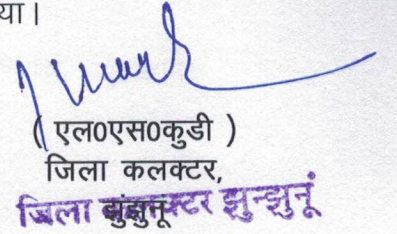 या।
( एल0एस0कुडी )
जिला कलक्टर,
झुंझुनू
जिला कलक्टर झुन्झुनूं